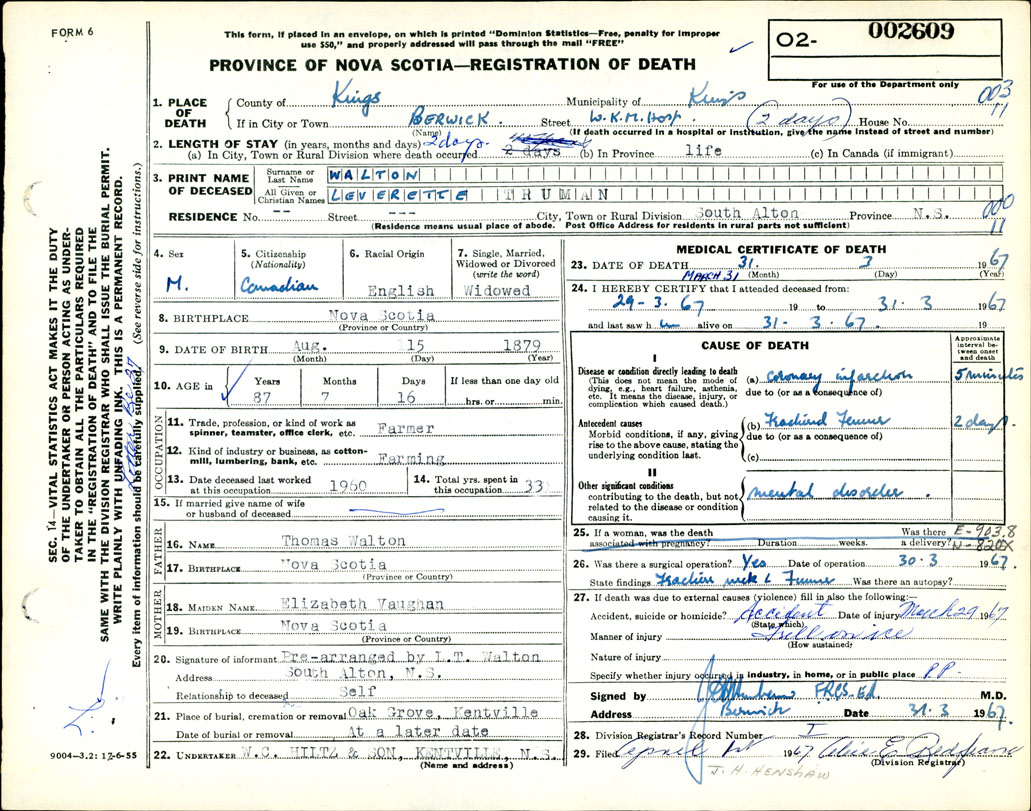 FORM 6
This form, if placed in an envelope, on which is printed “Dominion Statistics—Free, penalty for improper
use $50,” and properly addressed will pass through the mail “FREE”
02- 002609
PROVINCE OF NOVA SCOTIA—REGISTRATION OF DEATH
For use of the Department only
003
11
1. PLACE OF DEATH { County of Kings Municipality of Kings
If in City or Town BERWICK. Street W.K.M. Hosp. (2 days) House No.
(Name) (If death occurred in a hospital or institution, give the name instead of street and number)
2. LENGTH OF STAY (in years, months and days) 2 days.
(a) In City, Town or Rural Division where death occurred 2 days (b) In Province life (c) In Canada (if immigrant)
3. PRINT NAME OF DECEASED { Surname or Last Name WALTON
All Given or Christian Names LEVERETTE TRUMAN
RESIDENCE No. -- Street --- City, Town or Rural Division South Alton Province N.S. 000
11
(Residence means usual place of abode. Post Office Address for residents in rural parts not sufficient)
4. Sex
M.
5. Citizenship
(Nationality)
Canadian
6. Racial Origin
English
7. Single, Married,
Widowed or Divorced
(write the word)
Widowed
8. BIRTHPLACE Nova Scotia
(Province or Country)
9. DATE OF BIRTH Aug. 15 1879
(Month) (Day) (Year)
10. AGE in Years Months Days If less than one day old
87 7 16 hrs. or min.
OCCUPATION
11. Trade, profession, or kind of work as
spinner, teamster, office clerk, etc. Farmer
12. Kind of industry or business, as cotton-
mill, lumbering, bank, etc. Farming
13. Date deceased last worked
at this occupation 1960
14. Total yrs. spent in
this occupation 33
15. If married give name of wife
or husband of deceased
FATHER
16. NAME Thomas Walton
17. BIRTHPLACE Nova Scotia
(Province or Country)
MOTHER
18. MAIDEN NAME Elizabeth Vaughan
19. BIRTHPLACE Nova Scotia
(Province or Country)
20. Signature of informant Pre-arranged by L.T. Walton
Address South Alton, N.S.
Relationship to deceased Self
21. Place of burial, cremation or removal Oak Grove, Kentville
Date of burial or removal At a later date
22. UNDERTAKER W.C. HILTZ & SON, KENTVILLE, N.S.
(Name and address)
MEDICAL CERTIFICATE OF DEATH
23. DATE OF DEATH 31. 3 1967
MARCH 31 (Month) (Day) (Year)
24. I HEREBY CERTIFY that I attended deceased from:
29-3.67 19 to 31.3 1967
and last saw h im alive on 31-3-67. 19
CAUSE OF DEATH
Approximate
interval be-
tween onset
and death
I
Disease or condition directly leading to death
(This does not mean the mode of
dying, e.g., heart failure, asthenia,
etc. It means the disease, injury, or
complication which caused death.)
(a) Coronary infarction 5 minutes
due to (or as a consequence of)
Antecedent causes
Morbid conditions, if any, giving
rise to the above cause, stating the
underlying condition last.
(b) Fractured Femur 2 days.
due to (or as a consequence of)
(c)
II
Other significant conditions
contributing to the death, but not
related to the disease or condition
causing it.
mental disorder.
25. If a woman, was the death Was there E-903.8
associated with pregnancy? Duration weeks. a delivery? N-820X
26. Was there a surgical operation? Yes Date of operation 30.3 1967.
State findings Fracture neck L Femur Was there an autopsy?
27. If death was due to external causes (violence) fill in also the following:—
Accident, suicide or homicide? Accident Date of injury March 29 1967
(State which)
Manner of injury Fell on ice
(How sustained)
Nature of injury
Specify whether injury occurred in industry, in home, or in public place P.P.
Signed by FRCS. Ed. M.D.
Address Berwick Date 31.3 1967.
28. Division Registrar's Record Number I
29. Filed April 1st 1967 Alice E.
(Division Registrar)
J. H. HENSHAW
SEC. 14—VITAL STATISTICS ACT MAKES IT THE DUTY
OF THE UNDERTAKER OR PERSON ACTING AS UNDER-
TAKER TO OBTAIN ALL THE PARTICULARS REQUIRED
IN THE “REGISTRATION OF DEATH” AND TO FILE THE
SAME WITH THE DIVISION REGISTRAR WHO SHALL ISSUE THE BURIAL PERMIT.
WRITE PLAINLY WITH UNFADING INK. THIS IS A PERMANENT RECORD.
Every item of information should be carefully supplied. (See reverse side for instructions.)
9004—3.2: 12-6-55